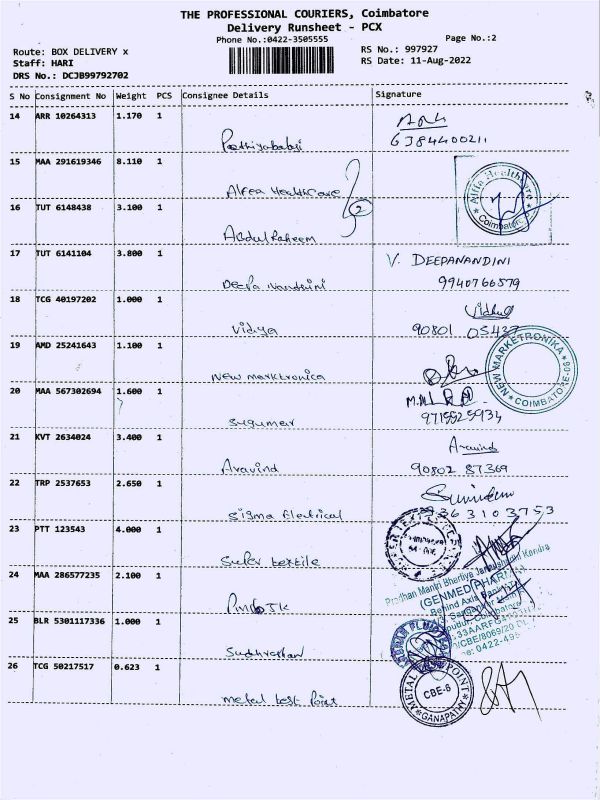 THE PROFESSIONAL COURIERS, Coimbatore
Delivery Runsheet - PCX
Phone No.:0422-3505555
Page No.:2
Route: BOX DELIVERY x
RS No.: 997927
Staff: HARI
RS Date: 11-Aug-2022
DRS No.: DCJB99792702
S No Consignment No Weight PCS Consignee Details Signature
14 ARR 10264313 1.170 1
6384400211
15 MAA 291619346 8.110 1
Alfea HealthCare
Alfia HealthCare
Coimbatore
16 TUT 6148438 3.100 1
2
Abdul Raheem
17 TUT 6141104 3.800 1
V. DEEPANANDINI
Deepa Nandhini 9940766579
18 TCG 40197202 1.000 1
Vidhya
Vidya 90801 05437
19 AMD 25241643 1.100 1
New marktronica
NEW MARKETRONIKA
COIMBATORE-06
20 MAA 567302694 1.600 1
Sugumar 9715525934
21 KVT 2634024 3.400 1
Aravind
Aravind 90802 87369
22 TRP 2537653 2.650 1
Sigma Electrical 9363103753
23 PTT 123543 4.000 1
Super textile
24 MAA 286577235 2.100 1
Pradhan Mantri Bhartiya Janaushadhi Kendra
(GENMED PHARMA)
Behind Axis Bank
25 BLR 5301117336 1.000 1
Sudharshan
26 TCG 50217517 0.623 1
METAL POINT
CBE-6
GANAPATHY
metal test Point